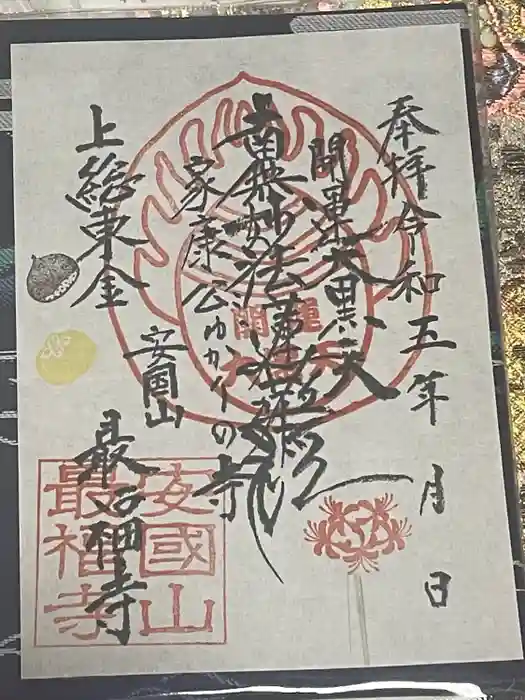 奉拝 令和五年 月 日
開運大黒天
南無妙法蓮華経
家康公ゆかりの寺
安国山
上総東金
最福寺
開運
大黒天
安國山
最福寺